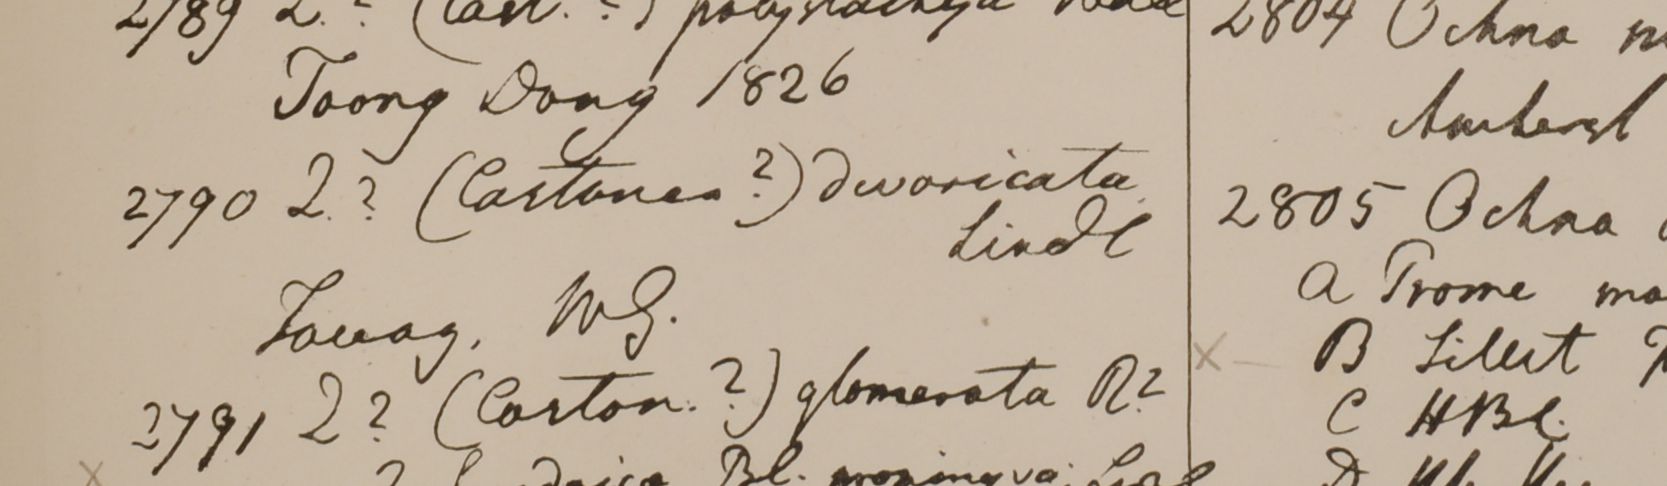 2789 Q.? (Cast.?) polystachya Wall
Toong Dong 1826
2790 Q.? (Castanea?) divaricata
Lindl
Tavoy, WG.
2791 Q? (Castan.?) glomerata R?
Bl.
2804 Ochna
Amherst
2805 Ochna
A Prome
B Silhet
C HBC.
D